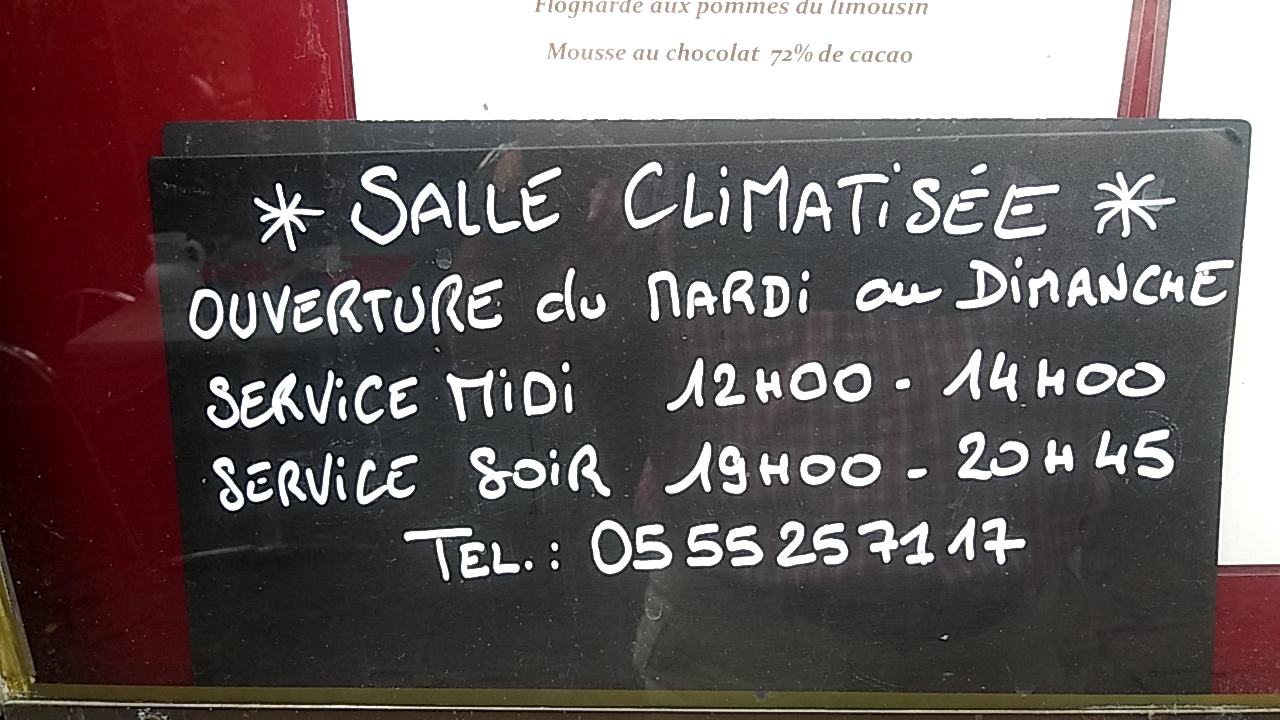 Flognarde aux pommes du limousin
Mousse au chocolat 72% de cacao
* SALLE CLiMATiSÉE *
OUVERTURE du MARDi au DiMANCHE
SERViCE MiDi 12H00 - 14H00
SERViCE SOiR 19H00 - 20H45
TEL. : 05 55 25 71 17